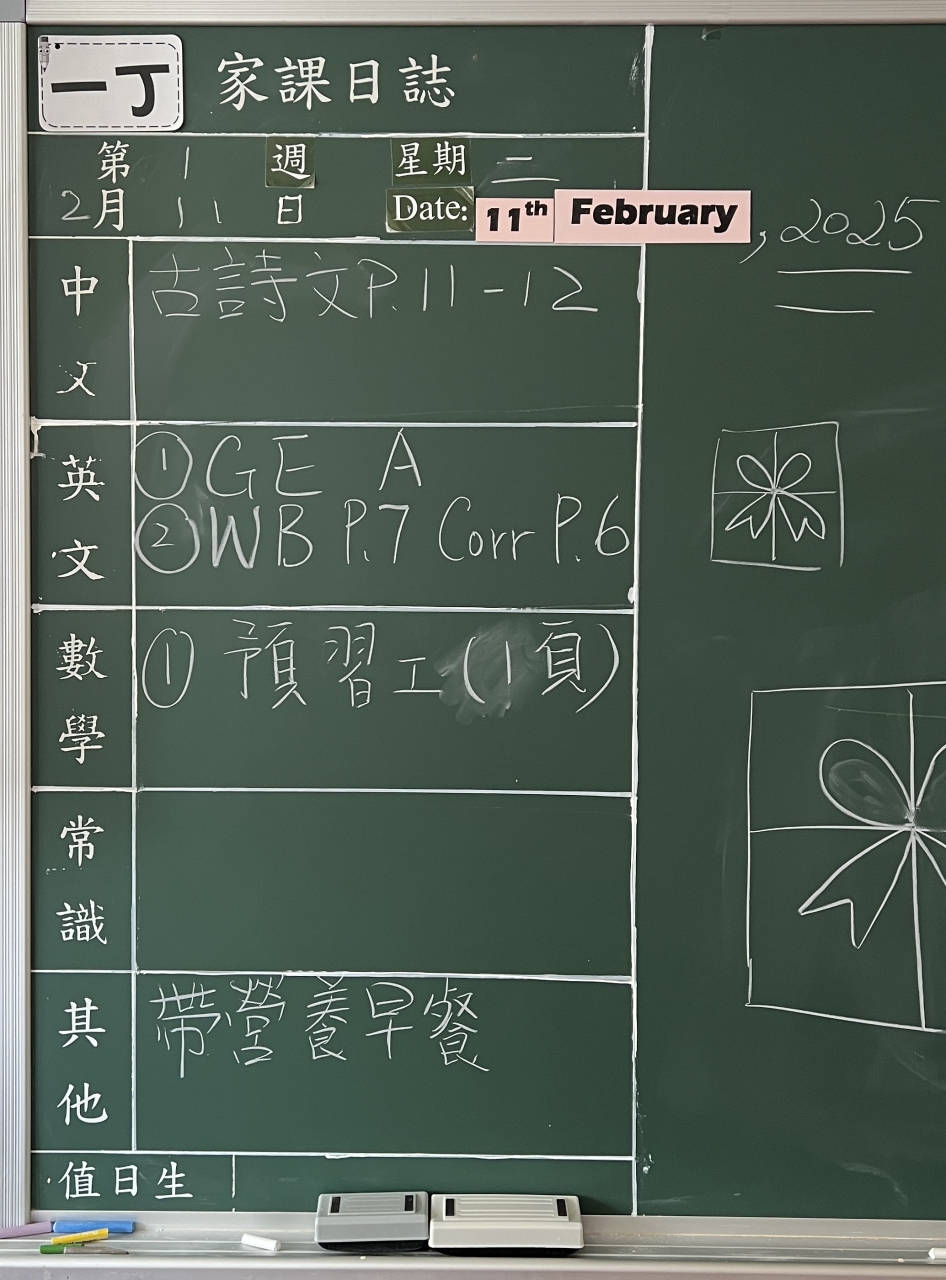 一丁 家課日誌
第 1 週 星期 二
2月 11 日 Date: 11th February, 2025
中文 古詩文P.11-12
英文 ① GE A
② WB P.7 Corr P.6
數學 ① 預習工(1頁)
常識
其他 帶營養早餐
值日生